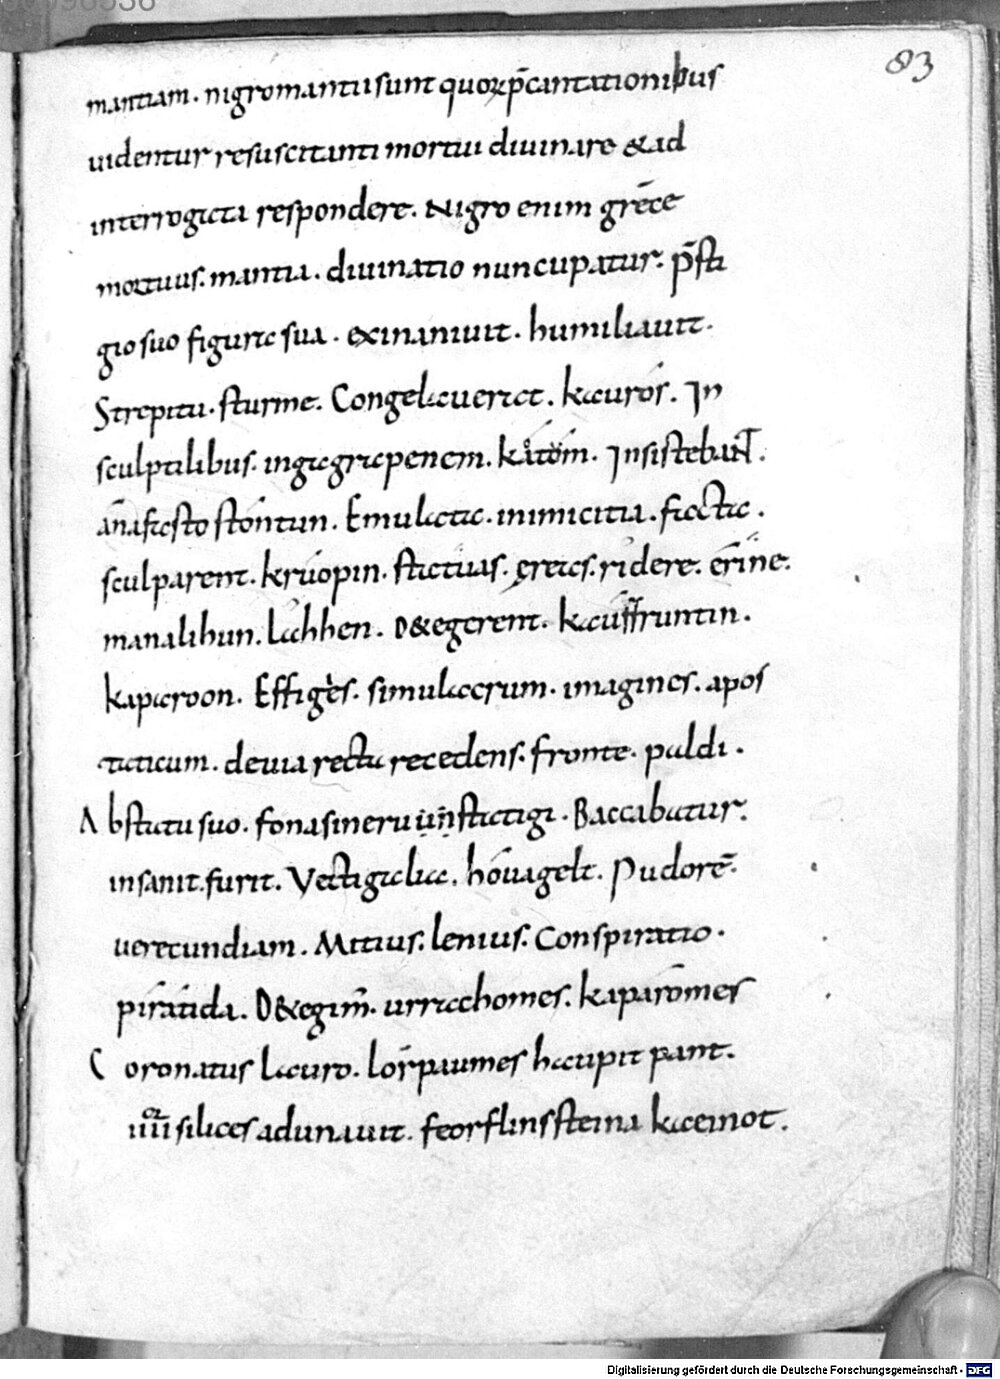 83
mantiam. nigromantii sunt quorum p̄cantationibus
uidentur resuscitanti mortui diuinare & ad
interrogata respondere. Nigro enim grēce
mortuus. mantia. diuinatio nuncupatur. p̄sti
gio suo figura sua. exinaniuit. humiliauit.
Strepitu. sturme. Congelauerat. kacuros. In
sculptilibus. ingagrapenem. katom. Insistebant.
anafasto stontun. Emulatae. inimicitia. facta.
sculparent. kruopin. statuas. ęreas. ridere. erine.
manalihun. lahhen. D&egerent. kauffruntin.
kapiaroon. Effiges. simulacrum. imagines. apos
taticum. deuia rectu recedens. fronte. puldi.
Abstatu suo. fonasineru unstatigi. Baccabatur.
insanit. furit. Vectigalia. houagelt. Pudorē.
uerecundiam. Mitius. lenius. Conspiratio.
piratida. D&egim̄. urrachomes. kaparomes
Coronatus lauro. lorpaumes haupit pant.
iiiior silices adunauit. feorflinssteina kaceinot.
Digitalisierung gefördert durch die Deutsche Forschungsgemeinschaft - DFG